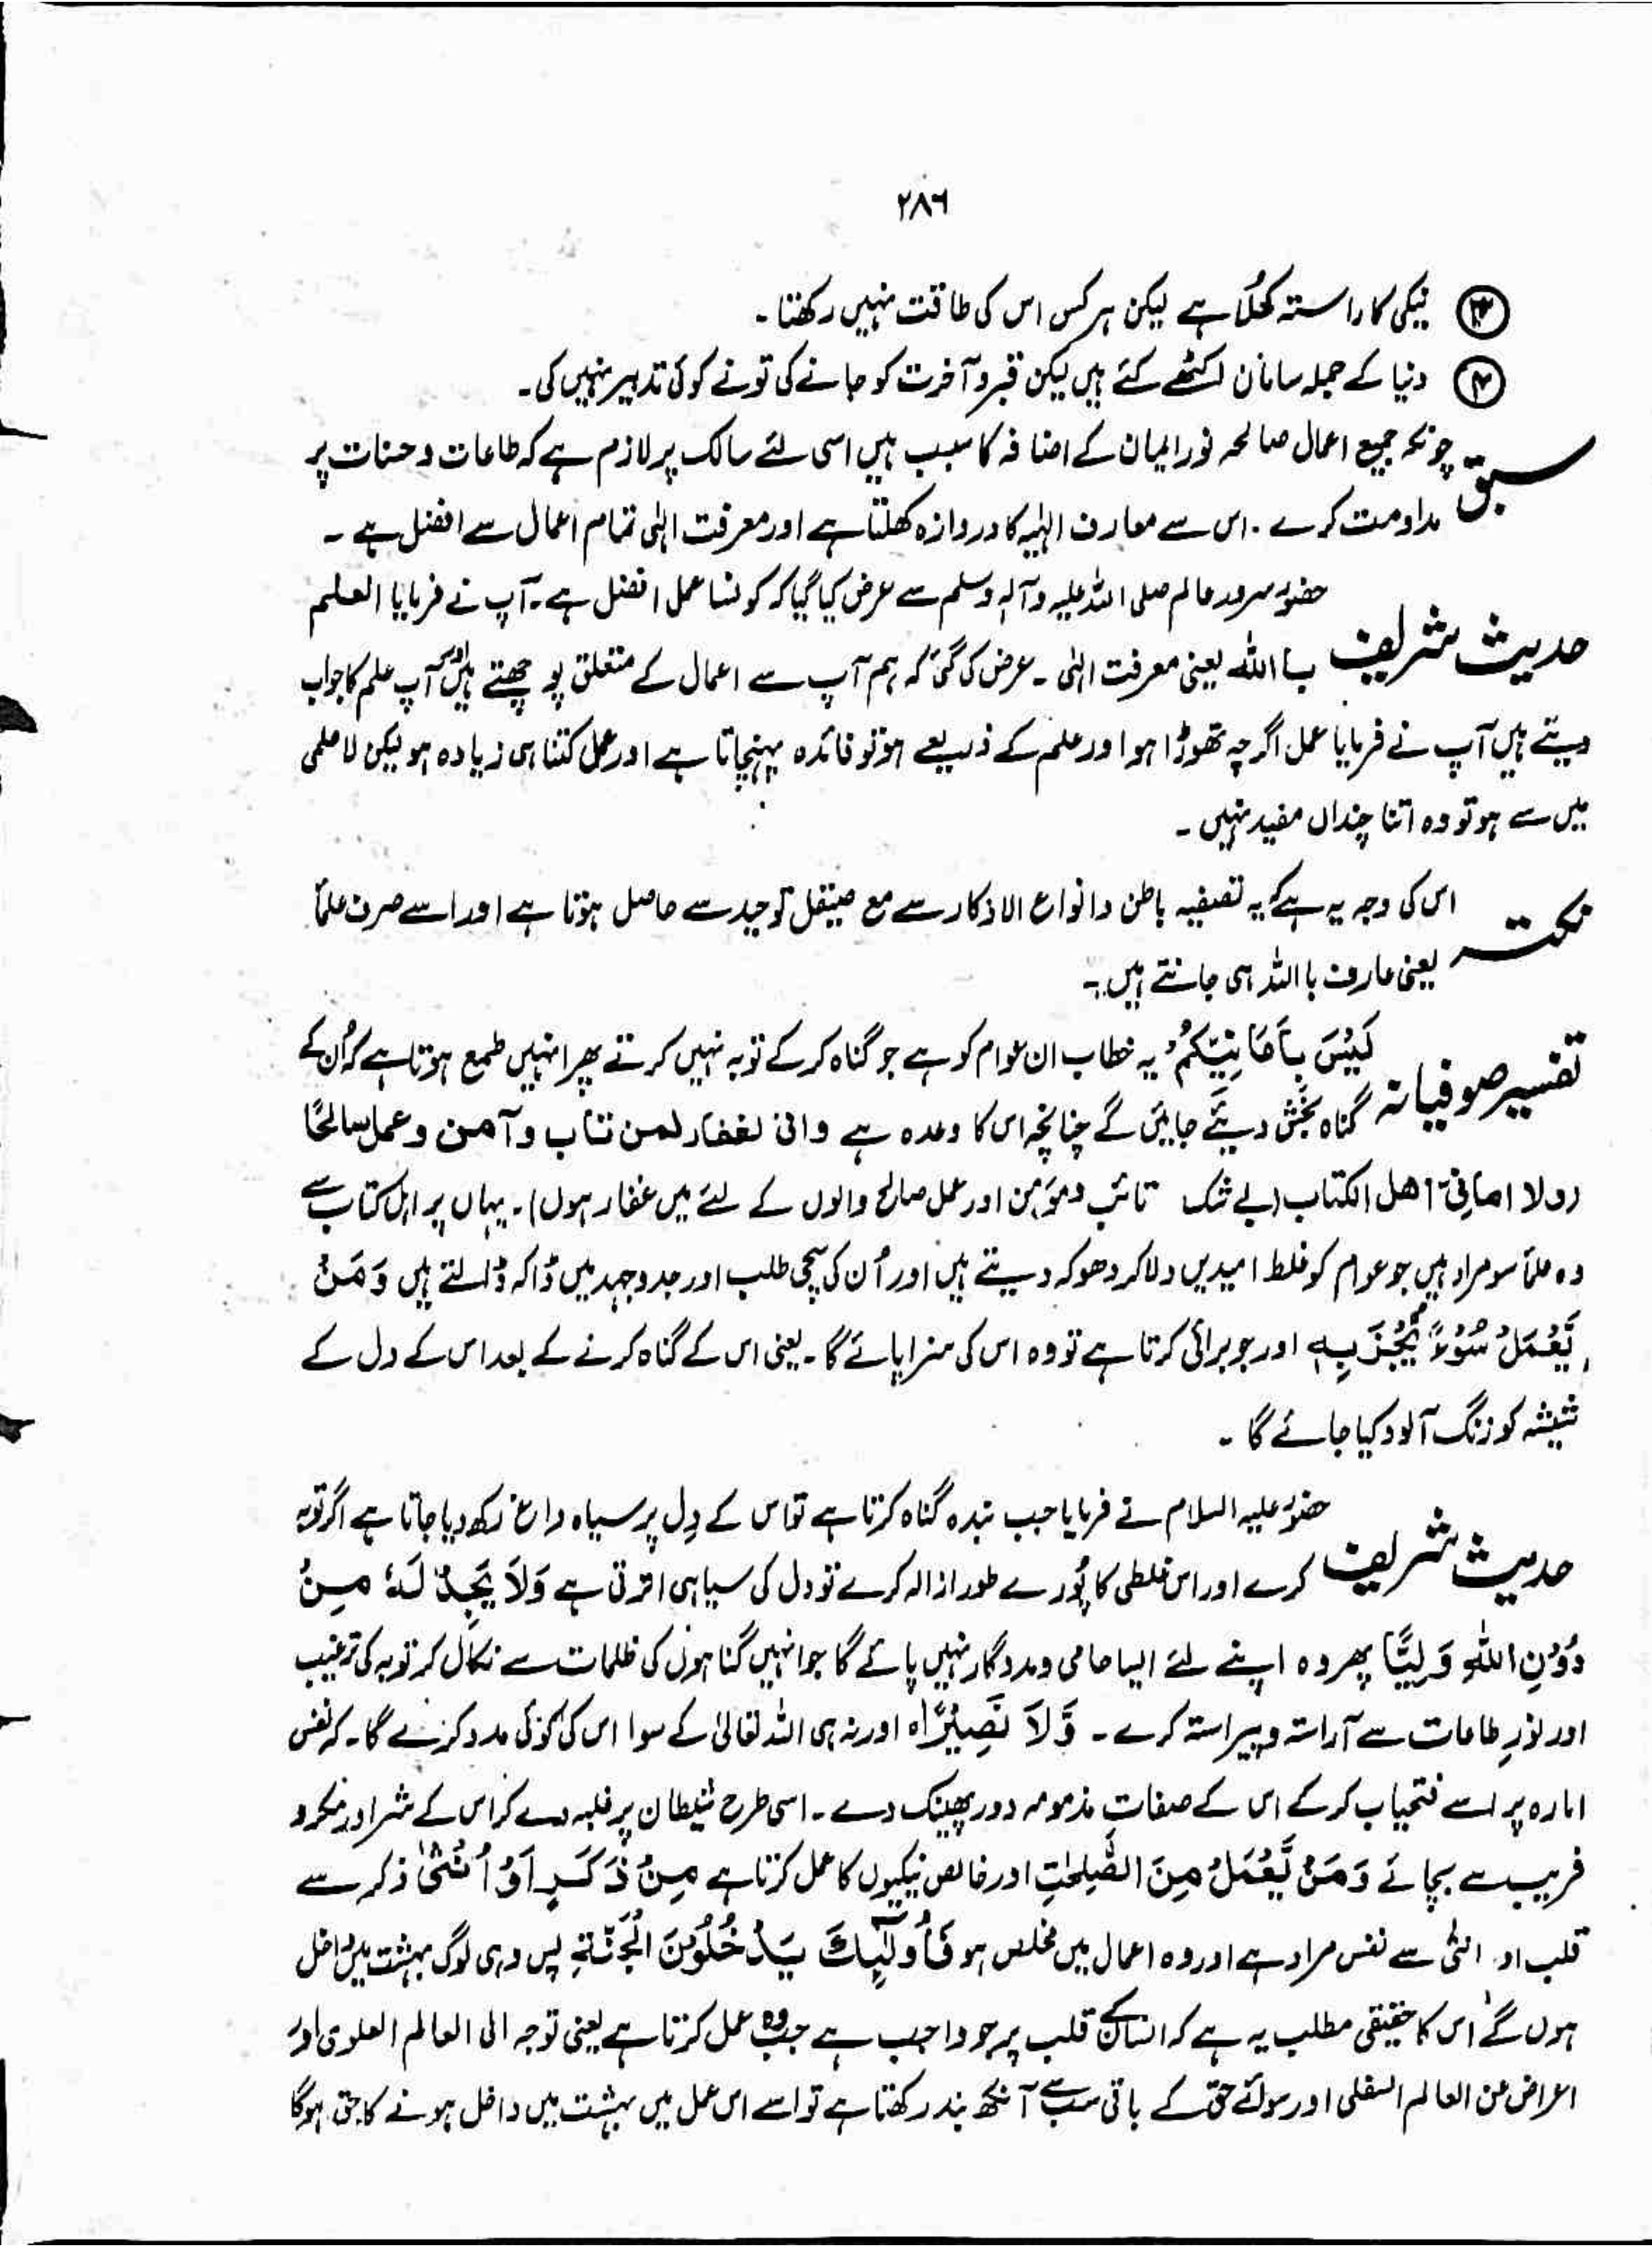 ۲۸۶
③ نیکی کا راستہ کھُلا ہے لیکن ہر کس اس کی طاقت نہیں رکھتا ۔
④ دنیا کے جملہ سامان اکٹھے کئے ہیں لیکن قبر و آخرت کو جانے کی تونے کوئی تدبیر نہیں کی ۔
سبق چونکہ جمیع اعمال صالحہ نور ایمان کے اضافہ کا سبب ہیں اسی لئے سالک پر لازم ہے کہ طاعات و حسنات پر
مداومت کرے ۔ اس سے معارف الٰہیہ کا دروازہ کھلتا ہے اور معرفت الٰہی تمام اعمال سے افضل ہے ۔
حدیث شریف حضور سرور عالم صلی اللہ علیہ وآلہ وسلم سے عرض کیا گیا کہ کونسا عمل افضل ہے ۔ آپ نے فرمایا العلم
باﷲ یعنی معرفت الٰہی ۔ عرض کی گئی کہ ہم آپ سے اعمال کے متعلق پوچھتے ہیں اور آپ علم کا جواب
دیتے ہیں آپ نے فرمایا عمل اگرچہ تھوڑا ہو اور علم کے ذریعے ہو تو فائدہ پہنچاتا ہے اور عمل کتنا ہی زیادہ ہو لیکن لاعلمی
میں سے ہو تو وہ اتنا چنداں مفید نہیں ۔
نکتہ اس کی وجہ یہ ہے کہ یہ تصفیہ باطن و انواع الاذکار سے مع صیقل توحید سے حاصل ہوتا ہے اور اسے صرف علمأ
یعنی عارف با اللہ ہی جانتے ہیں ۔
تفسیر صوفیانہ لَیْسَ بِاَمَانِیِّکُمْ یہ خطاب ان عوام کو ہے جو گناہ کر کے توبہ نہیں کرتے پھر انہیں طمع ہوتا ہے کہ اُن کے
گناہ بخش دیئے جائیں گے چنانچہ اس کا وعدہ ہے وانی لغفار لمن تاب وآمن وعمل سالحًا
(ولا امانی اھل الکتاب (بے شک تائب و مؤمن اور عمل صالح والوں کے لئے میں غفار ہوں) ۔ یہاں پر اہل کتاب سے
وہ علمأ سو مراد ہیں جو عوام کو غلط امیدیں دلا کر دھوکہ دیتے ہیں اور اُن کی سچی طلب اور جدوجہد میں ڈاکہ ڈالتے ہیں وَمَنْ
یَّعْمَلْ سُوْٓءًا یُّجْزَ بِہٖ اور جو برائی کرتا ہے تو وہ اس کی سزا پائے گا ۔ یعنی اس کے گناہ کرنے کے بعد اس کے دل کے
شیشہ کو زنگ آلود کیا جائے گا ۔
حدیث شریف حضور علیہ السلام نے فرمایا جب بندہ گناہ کرتا ہے تو اس کے دِل پر سیاہ داغ رکھ دیا جاتا ہے اگر توبہ
کرے اور اس غلطی کا پُورے طور ازالہ کرے تو دل کی سیاہی اترتی ہے وَلَا یَجِدْ لَہٗ مِنْ
دُوْنِ اللّٰہِ وَلِیًّا پھر وہ اپنے لئے ایسا حامی و مددگار نہیں پائے گا جو انہیں گناہوں کی ظلمات سے نکال کر توبہ کی ترغیب
اور نورِ طاعات سے آراستہ و پیراستہ کرے ۔ وَّلَا نَصِیْرًاہ اور نہ ہی اللہ تعالیٰ کے سوا اس کی کوئی مدد کرنے گا ۔ کہ نفس
امارہ پر اسے فتحیاب کر کے اس کے صفاتِ مذمومہ دور پھینک دے ۔ اسی طرح شیطان پر غلبہ دے کر اس کے شر اور مکر و
فریب سے بچائے وَمَنْ یَّعْمَلْ مِنَ الصّٰلِحٰتِ اور خالص نیکیوں کا عمل کرتا ہے مِنْ ذَکَرٍ اَوْ اُنْثٰی ذکر سے
قلب اور انثٰی سے نفس مراد ہے اور وہ اعمال میں مخلص ہو فَاُولٰٓئِکَ یَدْخُلُوْنَ الْجَنَّۃَ پس وہی لوگ بہشت میں داخل
ہوں گے اس کا حقیقی مطلب یہ ہے کہ انسان کے قلب پر جو واجب ہے جب وہ عمل کرتا ہے یعنی توجہ الی العالم العلوی اور
اعراض عن العالم السفلی اور سوائے حق کے باقی سب سے آنکھ بند رکھتا ہے تو اسے اس عمل میں بہشت میں داخل ہونے کا حق ہوگا